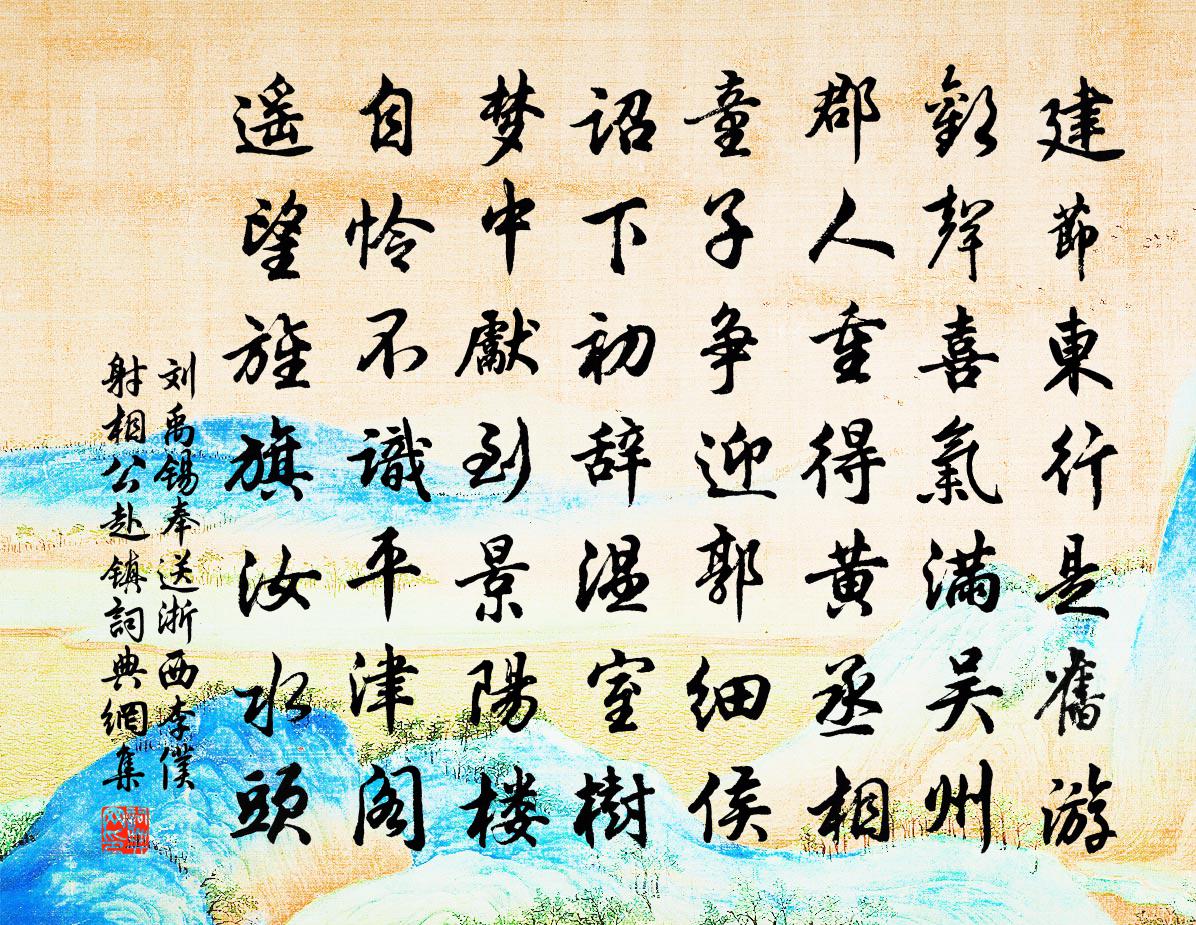 建節東行是舊游
歡聲喜氣滿吴州
郡人重得黄丞相
童子争迎郭細侯
詔下初辞温室樹
梦中獻到景陽楼
自怜不識平津阁
遥望旌旗汝水頭
刘禹锡奉送浙西李僕
射相公赴镇詞典網集